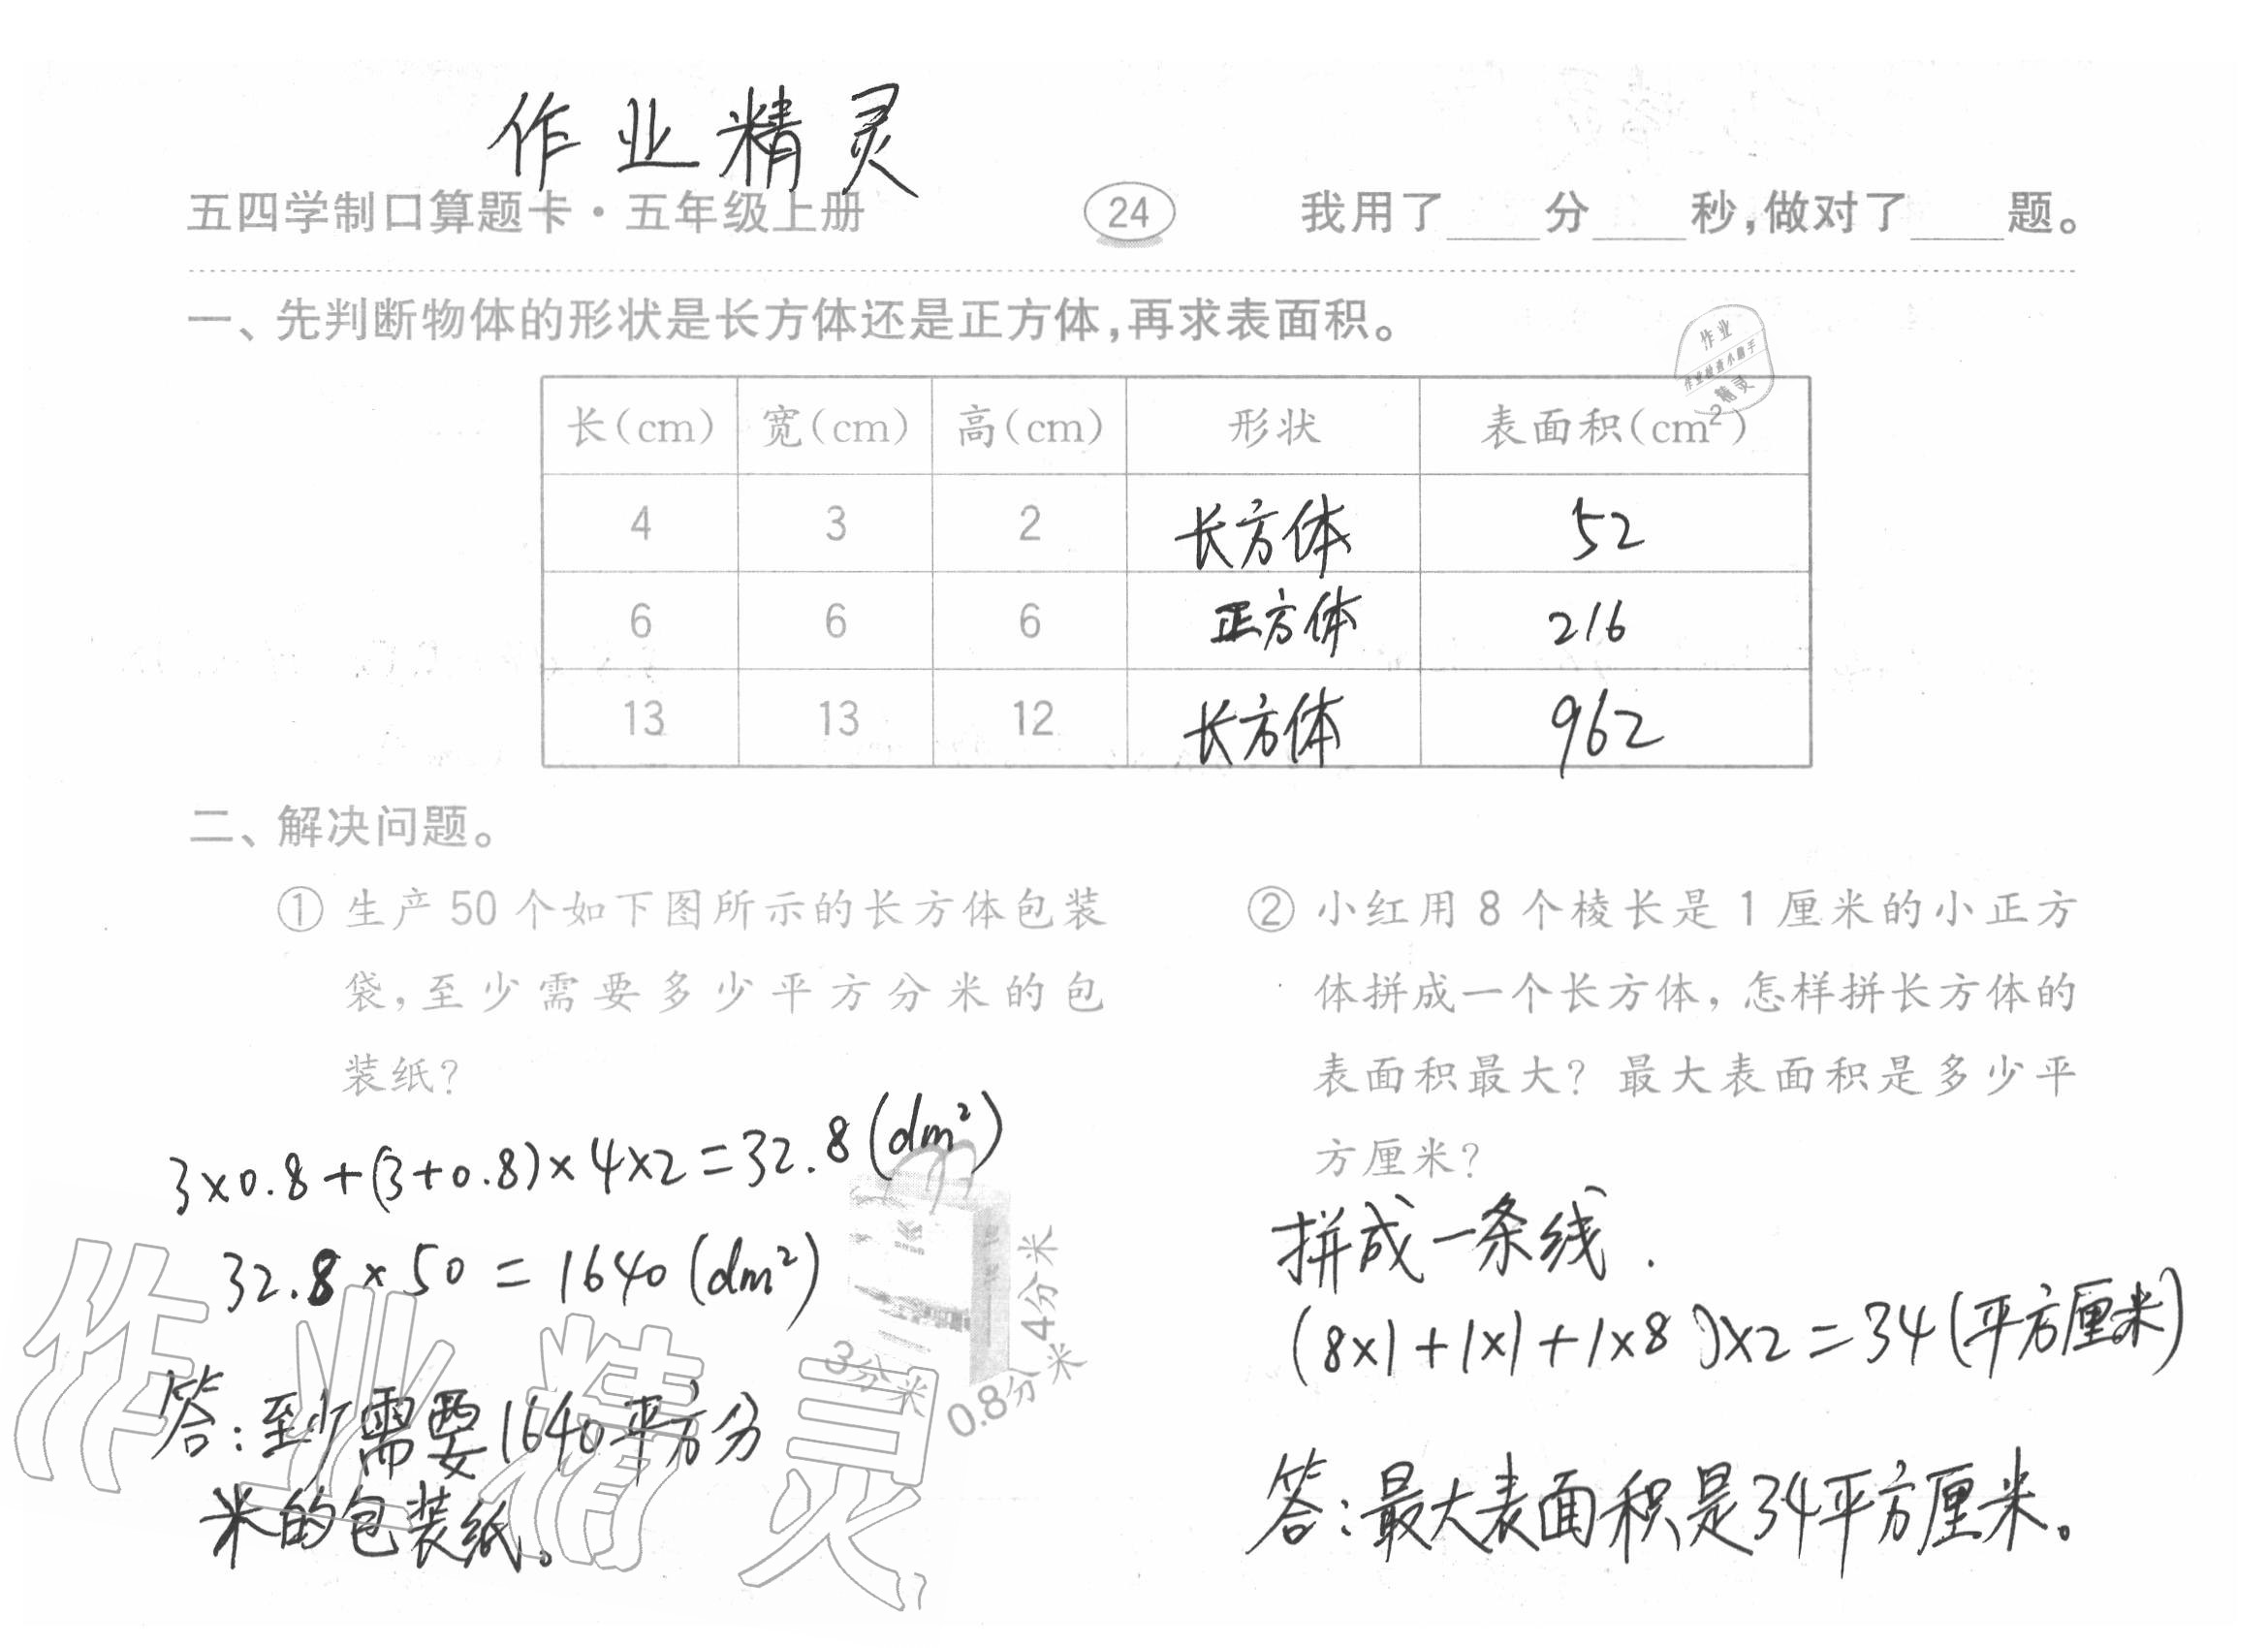 作业精灵
五四学制口算题卡·五年级上册 24 我用了____分____秒,做对了____题。
一、先判断物体的形状是长方体还是正方体,再求表面积。
作业
作业检查小助手
精灵
长(cm) 宽(cm) 高(cm) 形状 表面积(cm²)
4 3 2 长方体 52
6 6 6 正方体 216
13 13 12 长方体 962
二、解决问题。
① 生产50个如下图所示的长方体包装
袋,至少需要多少平方分米的包
装纸?
3×0.8+(3+0.8)×4×2=32.8(dm²)
32.8×50=1640(dm²)
4分米
3分米
0.8分米
答:至少需要1640平方分
米的包装纸。
② 小红用8个棱长是1厘米的小正方
体拼成一个长方体,怎样拼长方体的
表面积最大?最大表面积是多少平
方厘米?
拼成一条线.
(8×1+1×1+1×8)×2=34(平方厘米)
答:最大表面积是34平方厘米。
作业精灵